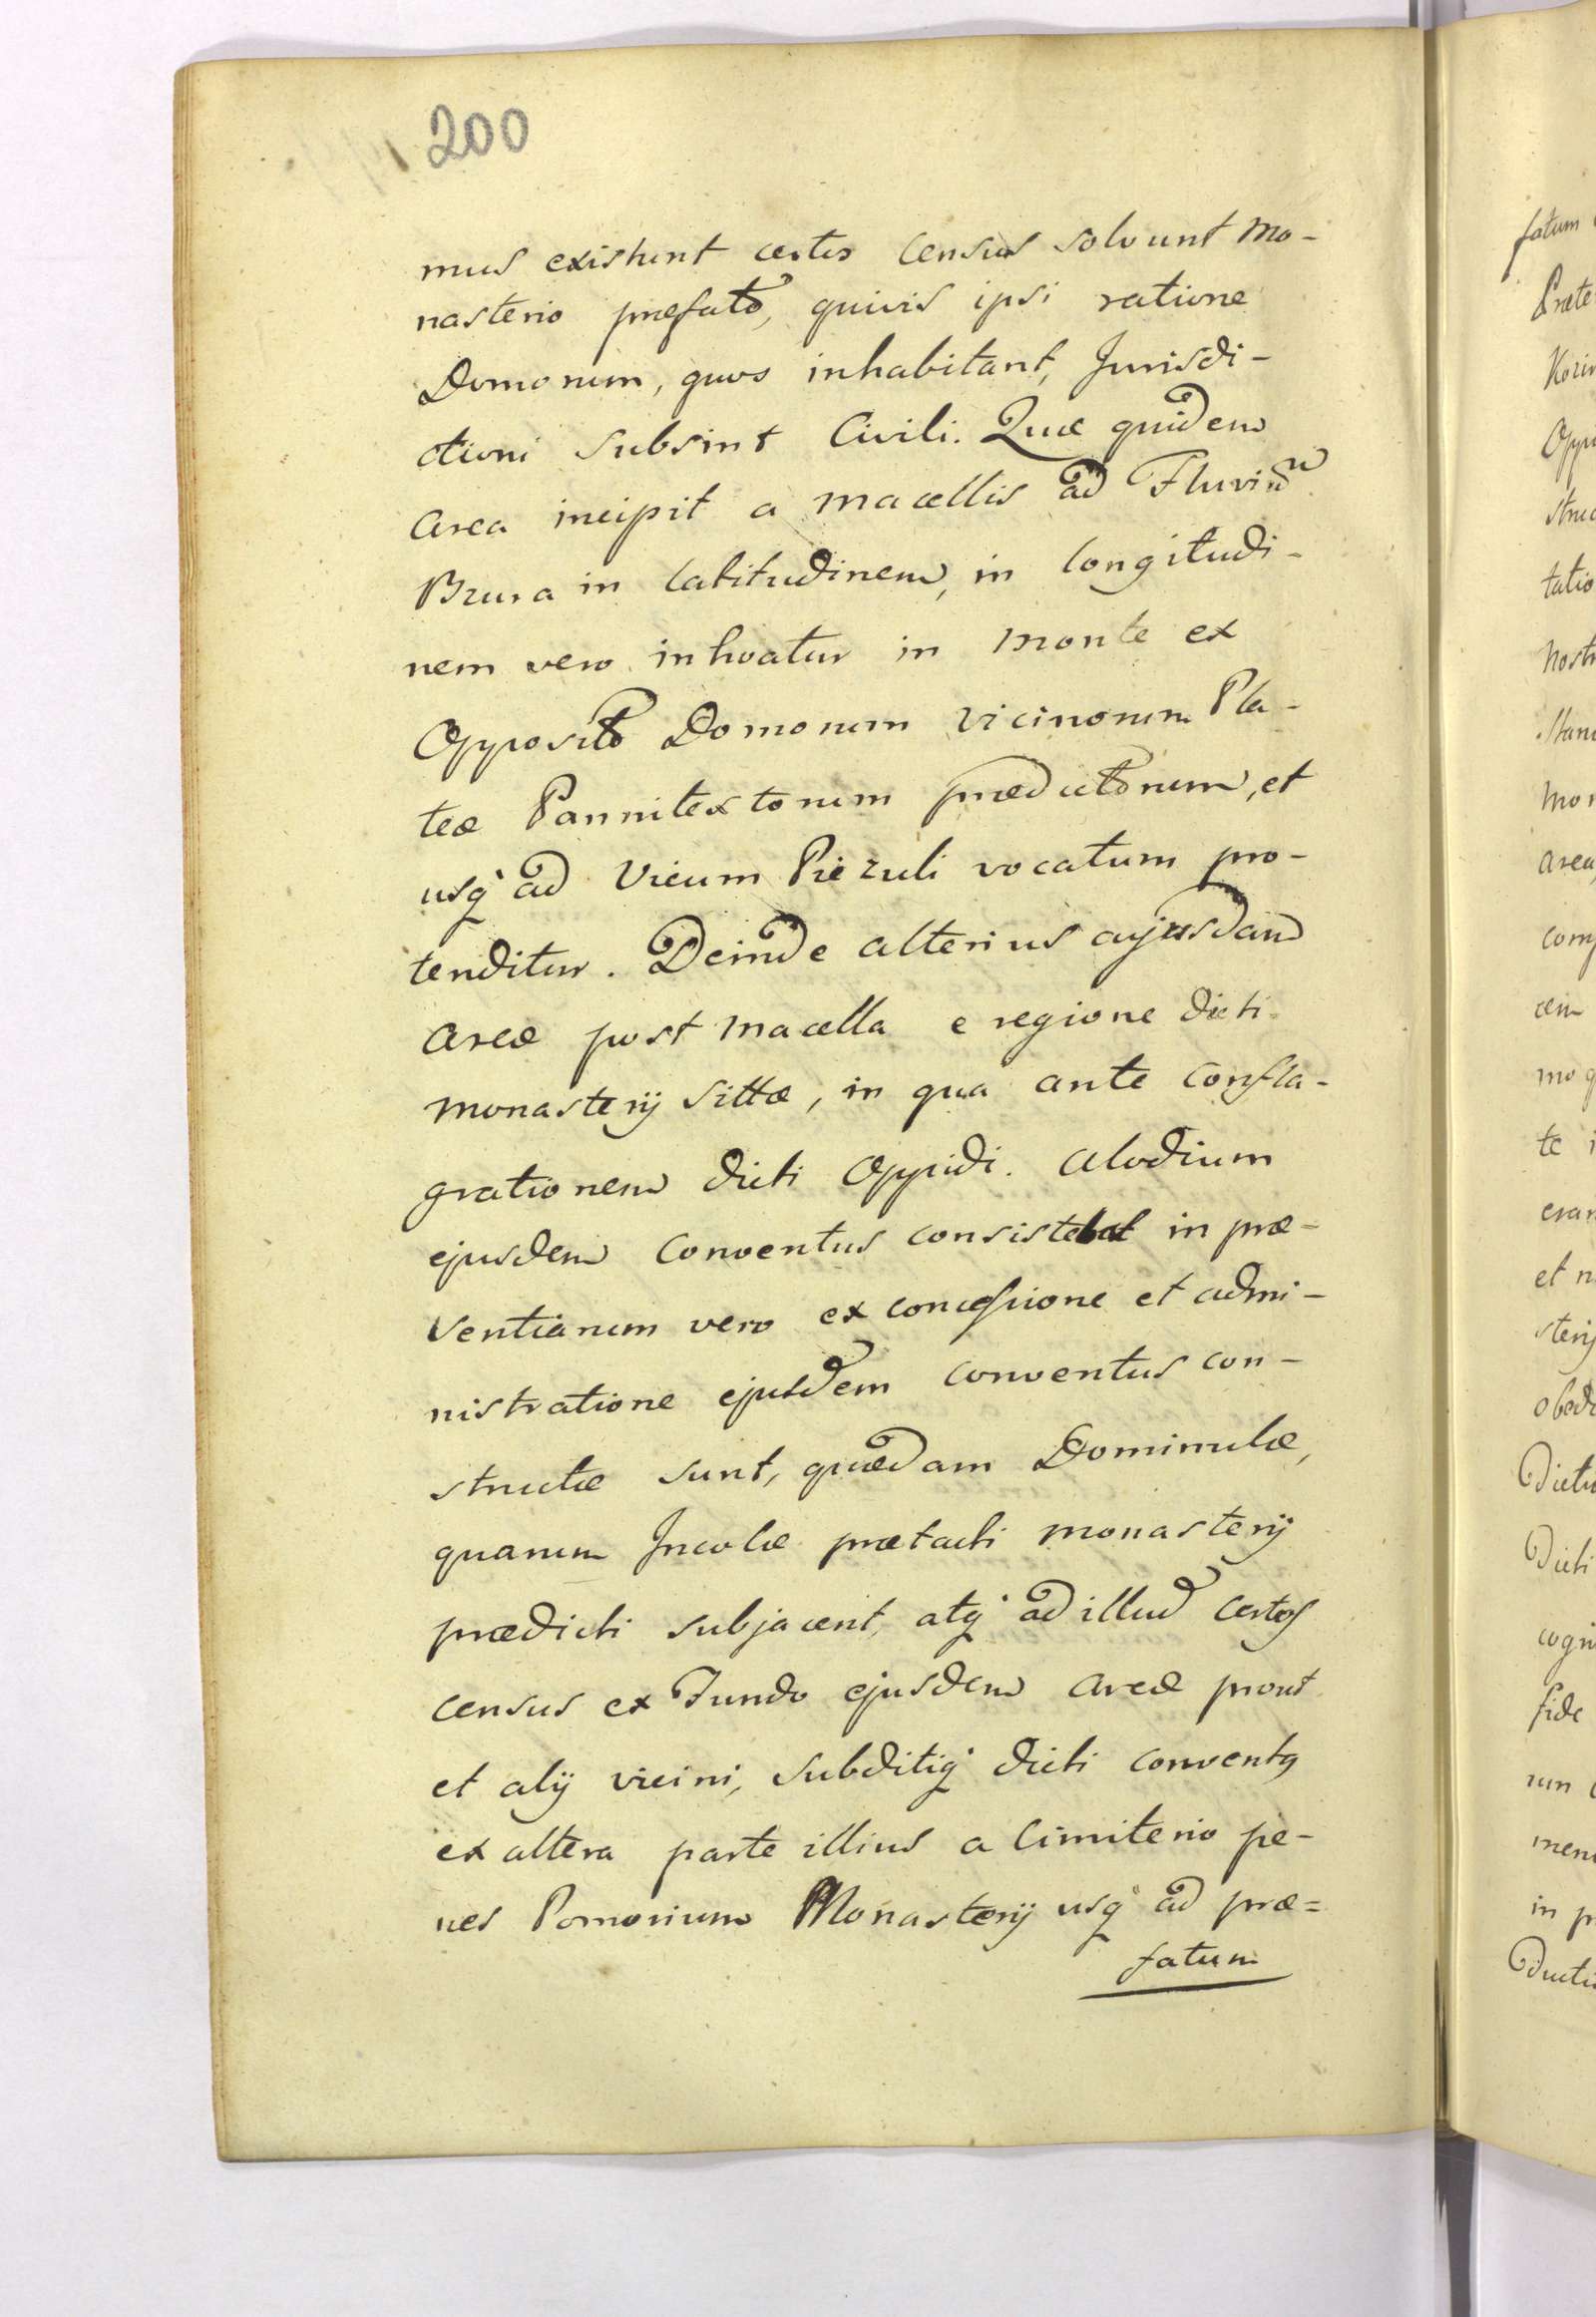 200
mus existunt certos Census solvunt Mo-
nasterio præfato, quivis ipsi ratione
Domorum, quos inhabitant, Jurisdi-
ctioni subsint Civili. Quæ quidem
area incipit a macellis ad Fluviū
Bzura in latitudinem, in longitudi-
nem vero inhoatur in Monte ex
Opposito Domorum vicinorum Pla-
teæ Pannitextorum prædictorum, et
usq ad Vicum Piezuli vocatum pro-
tenditur. Deinde alterius cujusdam
areæ post macella e regione dicti
monasterij sittæ, in qua ante Confla-
grationem dicti Oppidi. Alodium
ejusdem Conventus consistebat in præ-
sentiarum vero ex concessione et admi-
nistratione ejusdem conventus con-
structæ sunt, quædam Dominulæ,
quarum Incolæ prætacti monasterij
prædicti subjacent, atq ad illud certos
census ex Fundo ejusdem areæ prout
et alij vicini, subditiq dicti conventq
ex altera parte illius a Cimiterio pe-
nes Pomorium Monasterij usq ad præ=
fatum
fatum
Præte
Kozin
Oppi
struc
tatio
nostr
stan
mon
area,
com
cem
mo q
te i
eran
et n
sterij
obedi
Dictu
Dicti
cogn
fide
rum
men
in p
Ducti